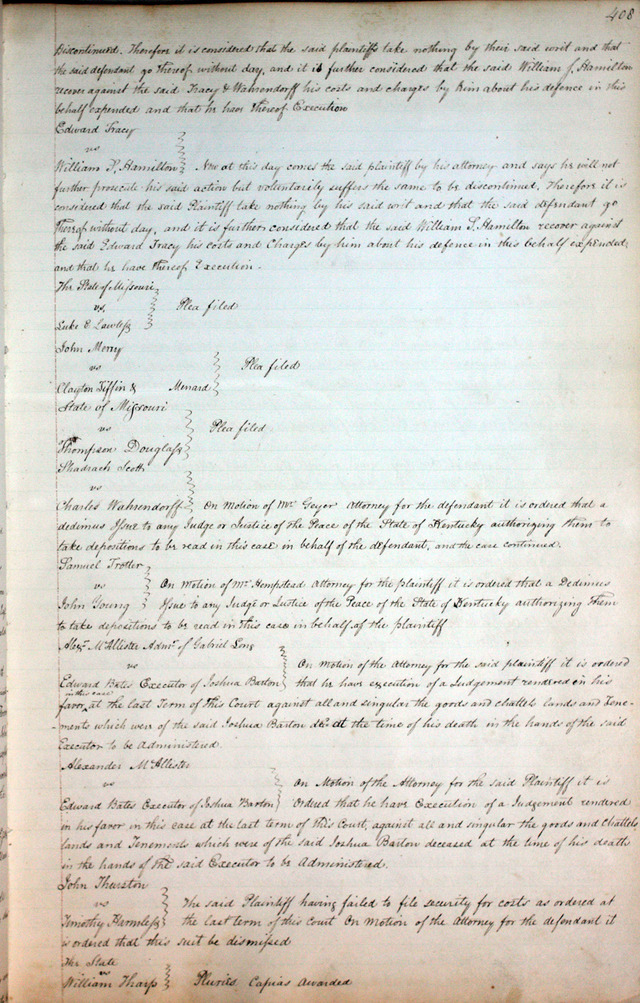 408
Discontinued. Therefore it is considered that the said plaintiffs take nothing by their said writ and that
the said defendant go thereof without day, and it is further considered that the said William S. Hamilton
recover against the said Tracy & Wahrendorff his costs and charges by him about his defence in this
behalf expended and that he have thereof Execution
Edward Tracy
vs
William S. Hamilton Now at this day comes the said plaintiff by his attorney and says he will not
further prosecute his said action but voluntarily suffers the same to be discontinued. Therefore it is
considered that the said Plaintiff take nothing by his said writ and that the said defendant go
thereof without day, and it is further considered that the said William S. Hamilton recover against
the said Edward Tracy his costs and Charges by him about his defence in this behalf expended,
and that he have thereof Execution.
The State of Missouri
vs. Plea filed
Luke E Lawless
John Merry
vs Plea filed
Clayton Tiffin & Menard
State of Missouri
vs Plea filed
Thompson Douglass
Shadrach Scott
vs
Charles Wahrendorff On Motion of Mr Geyer Attorney for the defendant it is ordered that a
dedimus Issue to any Judge or Justice of the Peace of the State of Kentucky authorizing them to
take depositions to be read in this case in behalf of the defendant, and the case continued.
Samuel Trotter
vs On Motion of Mr Hempstead Attorney for the plaintiff it is ordered that a Dedimus
John Young Issue to any Judge or Justice of the Peace of the State of Kentucky authorizing them
to take depositions to be read in this case in behalf of the plaintiff
Alexr McAllister Admr of Gabriel Long
vs On Motion of the Attorney for the said plaintiff it is ordered
Edward Bates Executor of Joshua Barton that he have execution of a Judgement rendered in his
in this case
favor at the last Term of this Court against all and singular the goods and chattels lands and Tene-
ments which were of the said Joshua Barton decd at the time of his death in the hands of the said
Executor to be Administered.
Alexander McAllister
vs On Motion of the Attorney for the said Plaintiff it is
Edward Bates Executor of Joshua Barton Ordered that he have Execution of a Judgement rendered
in his favor in this case at the last term of this Court, against all and singular the goods and Chattels
lands and Tenements which were of the said Joshua Barton deceased at the time of his death
in the hands of the said Executor to be Administered.
John Thurston
vs The said Plaintiff having failed to file security for costs as ordered at
Timothy Harmless the last term of this Court On Motion of the Attorney for the defendant it
is ordered that this suit be dismissed
The State
vs
William Tharp Pluries Capias Awarded